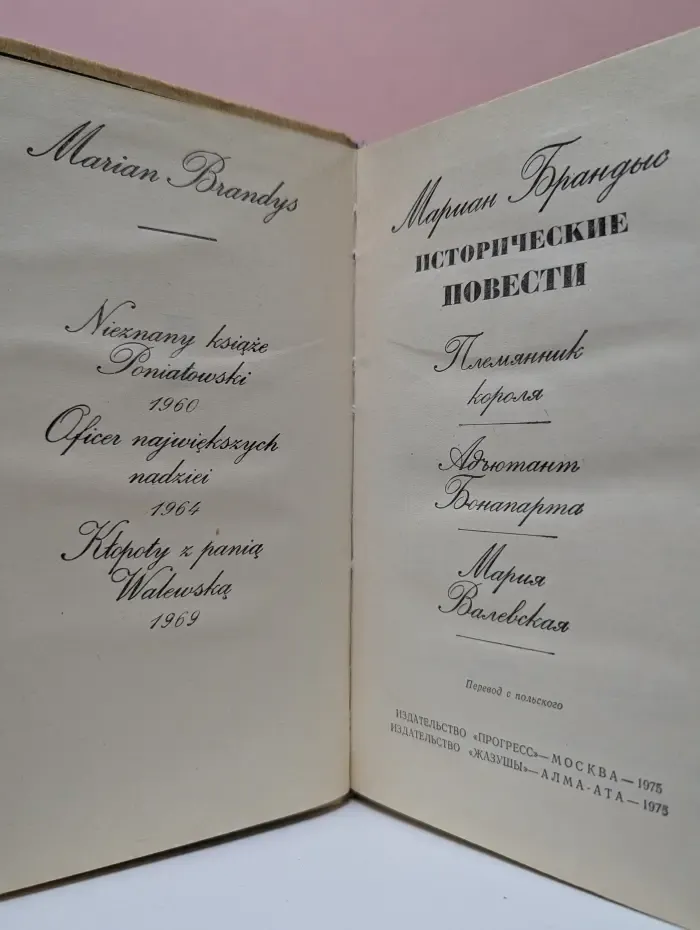 Marian Brandys
Nieznany książę
Poniatowski
1960
Oficer największych
nadziei
1964
Kłopoty z panią
Walewską
1969
Мариан Брандыс
ИСТОРИЧЕСКИЕ
ПОВЕСТИ
Племянник
короля
Адъютант
Бонапарта
Мария
Валевская
Перевод с польского
ИЗДАТЕЛЬСТВО «ПРОГРЕСС»—МОСКВА—1975
ИЗДАТЕЛЬСТВО «ЖАЗУШЫ»—АЛМА-АТА—1975